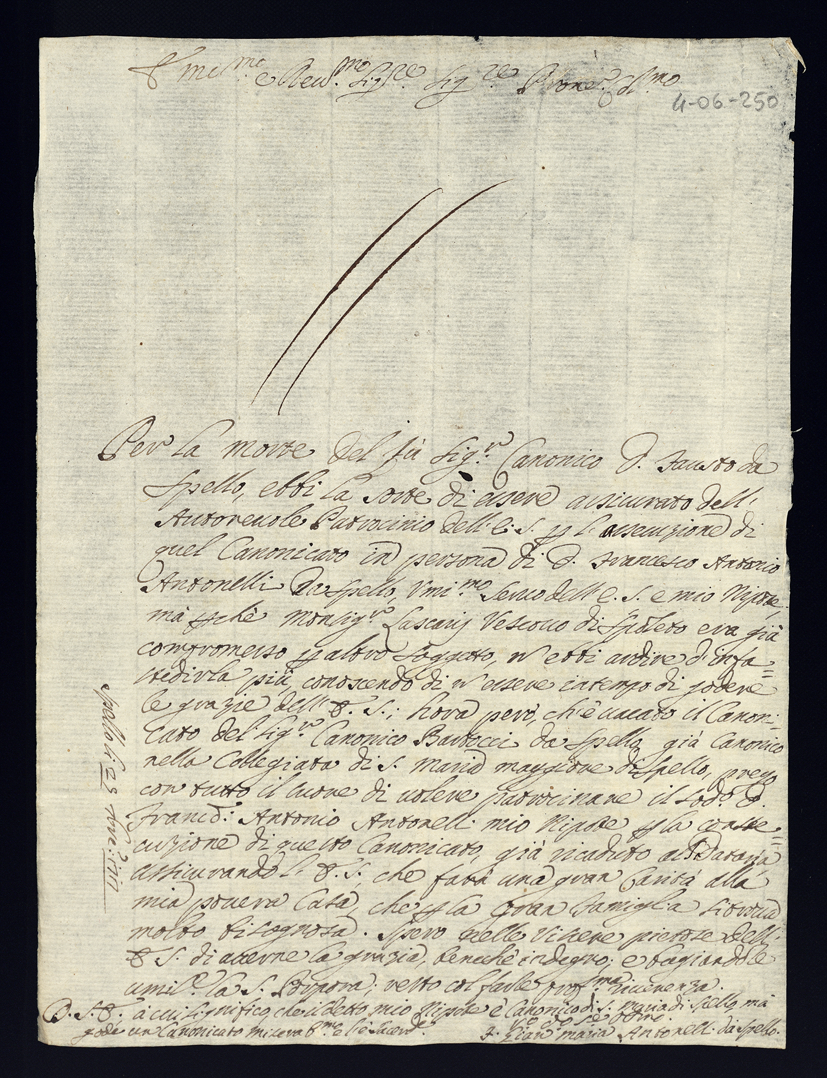 Emin.mo e Rev.mo Sig.re Sig.re Prone Col.mo
4-06-250
Per la morte del fù Sig.r Canonico D. Fausto da
Spello, ebbi la sorte di essere assicurato dell'
Autorevole Patrocinio dell'E. S. p l'assecuzione di
quel Canonicato in persona di D. Francesco Antonio
Antonelli da Spello Umi.mo Servo dell'E. S. e mio Nipote,
mà pche Monsig.r Lascaris Vescovo di Spoleto era già
compromesso p altro soggetto, n' ebbi ardire d'infa=
stidirla più, conoscendo di n' essere in tempo di godere
le grazie dell'E. S.; hora però, ch'è vacato il Canoni=
cato del Sig.r Canonico Bartocci da Spello, già Canonico
nella Collegiata di S. Maria maggiore di Spello, prego
con tutto il cuore di volere patrocinare il sod.o D.
Franc.o Antonio Antonelli mio Nipote p la conse=
cuzione di questo Canonicato, già ricaduto al Dataria
assicurando l'E. S., che farà una gran Carità alla
mia povera Casa, che p la gran famiglia si trova
molto bisognosa. Spero nelle viscere pietose dell'
E. S. di averne la grazia, benche indegno; e bagiandole
umil.e la S. Porpora, resto col farle prof.ma riverenza.
D. S. E. à cui significo, che il detto mio Nipote è Canonico di S. Maria di Spello, mà
gode un Canonicato
F. Maria Antonelli da Spello
Spello li 23 1717